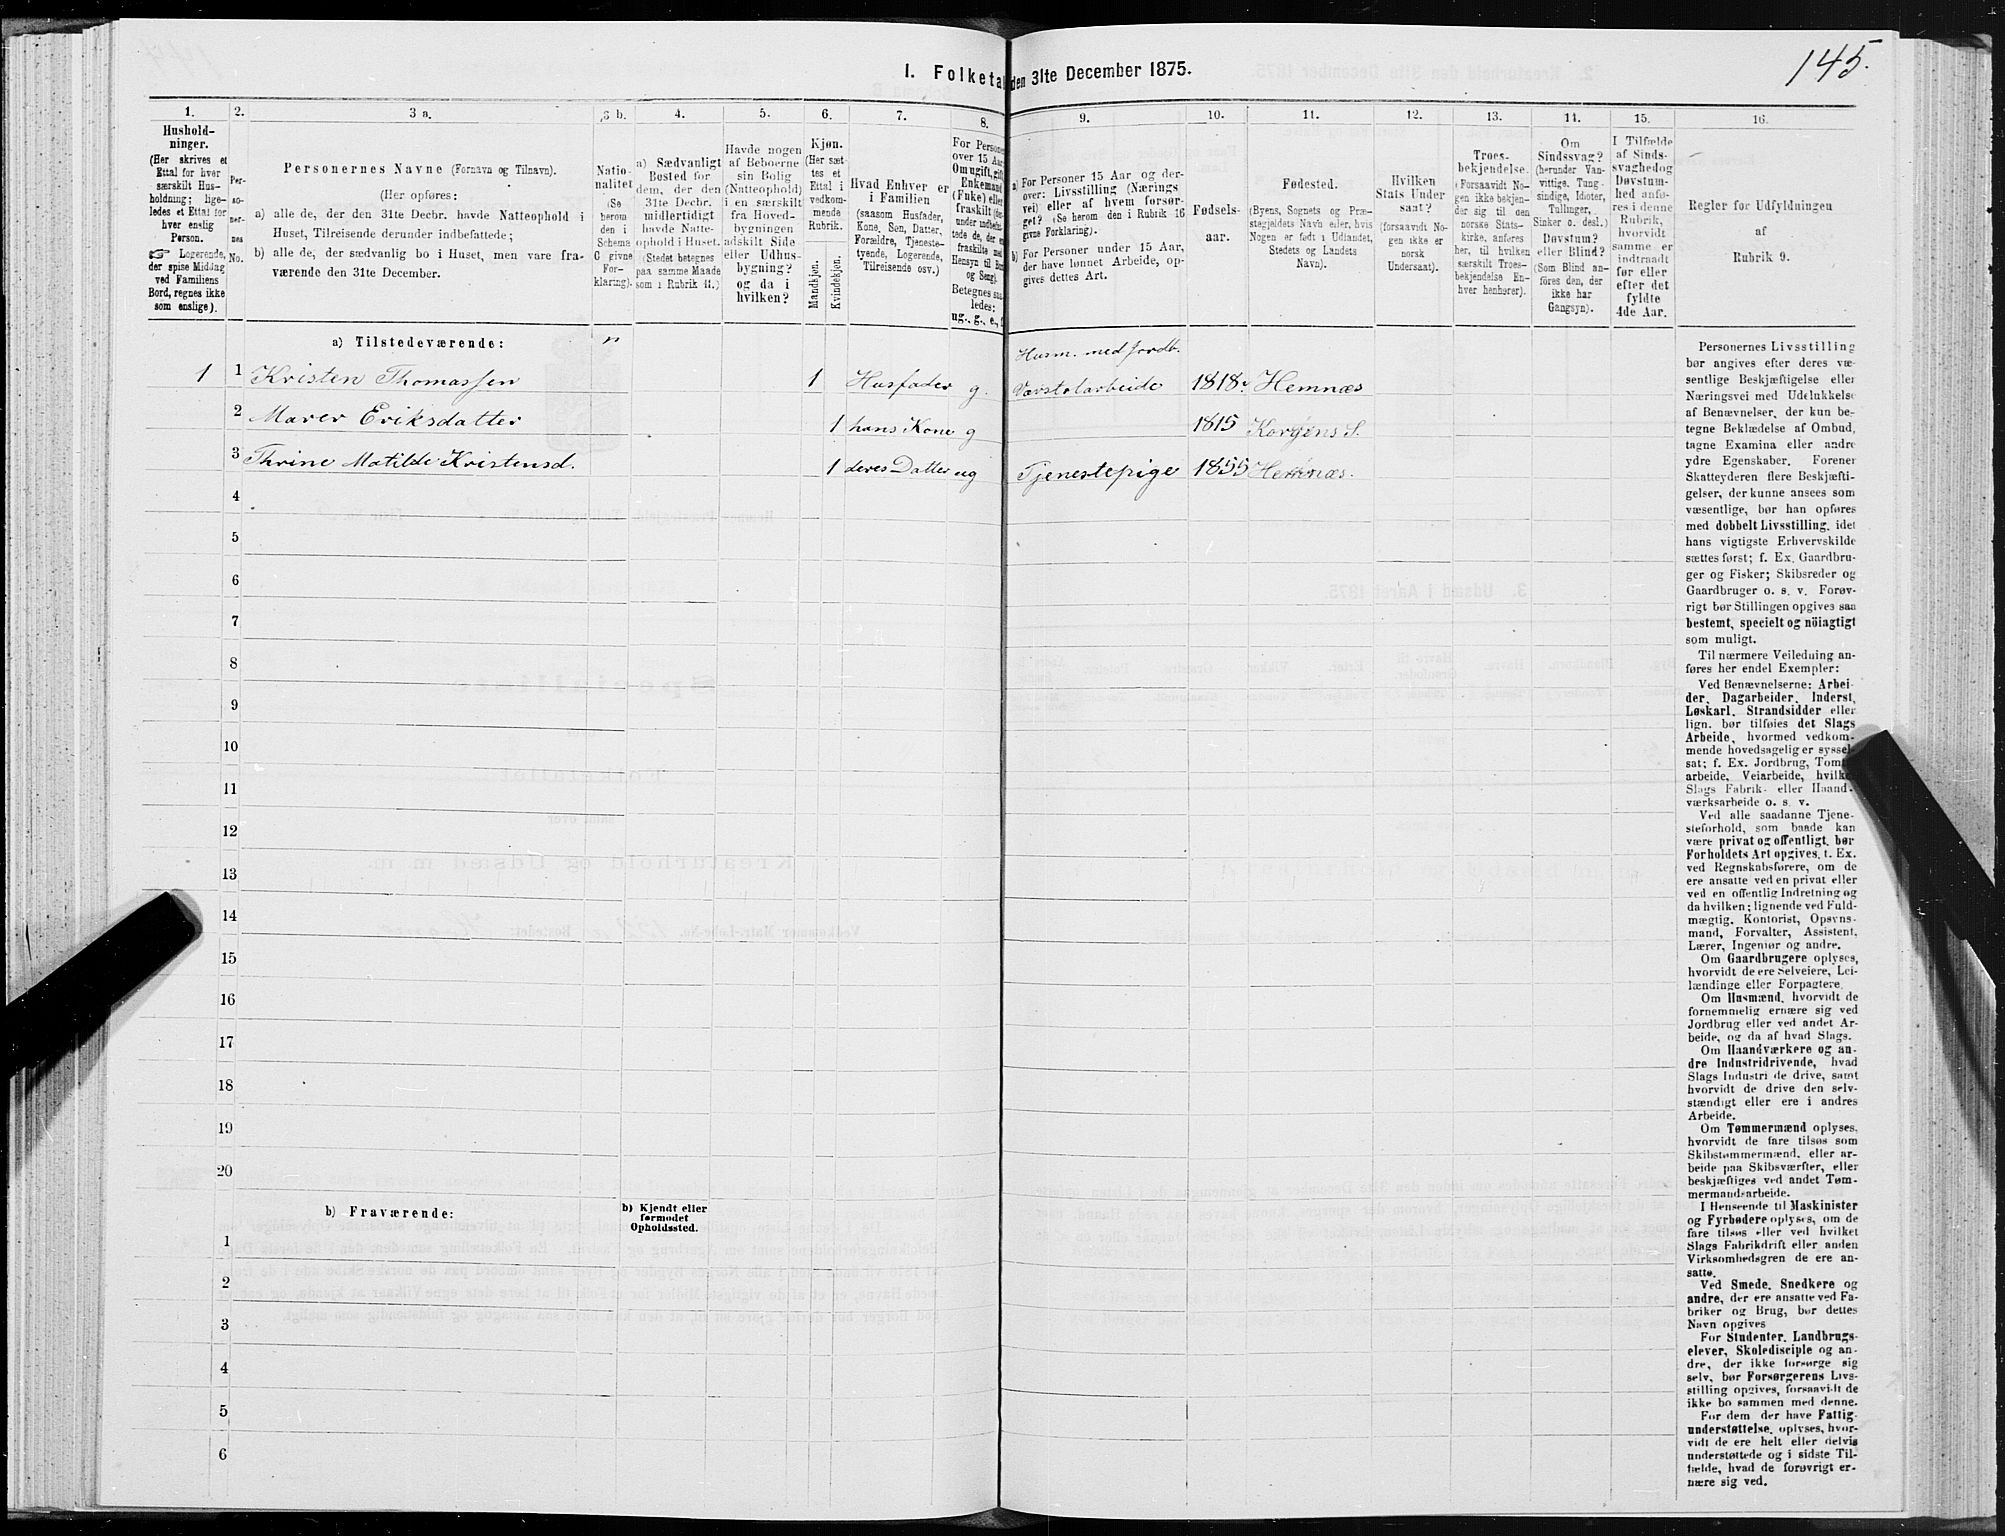 145.
I. Folketal den 31te December 1875.
1. 2. 3 a. 3 b. 4. 5. 6. 7. 8. 9. 10. 11. 12. 13. 14. 15. 16.
Hushold-
ninger.
(Her skrives et
Ettal for hver
særskilt Hus-
holdning; lige-
ledes et Ettal for
hver enslig
Person.
☞ Logerende,
der spise Middag
ved Familiens
Bord, regnes ikke
som enslige).
Per-
so-
ner-
nes
No.
Personernes Navne (Fornavn og Tilnavn).
(Her opføres:
a) alle de, der den 31te Decbr. havde Natteophold i
Huset, Tilreisende derunder indbefattede;
b) alle de, der sædvanlig bo i Huset, men vare fra-
værende den 31te December.
Natio-
nalitet
(Se
herom
den i
Schema
C givne
For-
klaring).
a) Sædvanligt
Bosted for
dem, der den
31te Decbr.
midlertidigt
havde Natte-
ophold i Huset.
(Stedet betegnes
paa samme Maade
som i Rubrik 11.)
Havde nogen
af Beboerne
sin Bolig
(Natteophold)
i en særskilt
fra Hoved-
bygningen
adskilt Side
eller Udhus-
bygning?
og da i
hvilken?
Kjøn.
(Her sæt-
tes et
Ettal i
vedkom-
mende
Rubrik.
Mandkjøn.
Kvindekjøn.
Hvad Enhver er
i Familien
(saasom Husfader,
Kone, Søn, Datter,
Forældre, Tjeneste-
tyende, Logerende,
Tilreisende osv.)
For Personer
over 15 Aar
Om ugift, gift,
Enkemand
(Enke) eller
fraskilt
Hensyn til Bord
og Seng).
Betegnes saa-
ledes:
ug., g., e.,
a) For Personer 15 Aar og der-
over: Livsstilling (Nærings
vei) eller af hvem forsør-
get? (Se herom den i Rubrik 16
givne Forklaring).
b) For Personer under 15 Aar,
der have lønnet Arbeide, op-
gives dettes Art.
Fødsels-
aar.
Fødested.
(Byens, Sognets og Præ-
stegjeldets Navn eller, hvis
Nogen er født i Udlandet,
Stedets og Landets
Navn).
Hvilken
Stats Under
saat?
(forsaavidt No-
gen ikke er
norsk
Undersaat).
Troes-
bekjendelse.
(Forsaavidt No-
gen ikke bekjen-
der sig til den
norske Stats-
kirke, anføres
her, til hvilken
særskilt Troes-
bekjendelse En-
hver henhører).
Om
Sindssvag?
(herunder Van-
vittige, Tung-
sindige, Idioter,
Tullinger,
Sinker o. desl.)
Døvstum?
eller Blind?
(Som Blind an-
føres den, der
ikke har
Gangsyn).
I Tilfælde
af Sinds-
svaghed og
Døvstum-
hed anfø-
res i denne
Rubrik,
hvorvidt
samme er
indtraadt
før eller
efter det
fyldte
4de Aar.
Regler for Udfyldningen
af
Rubrik 9.
a) Tilstedeværende: n
Husm. med Jordb.
1 1 Kristen Thomassen 1 Husfader g. Værstolarbeide 1818 Hemnæs
2 Maren Eriksdatter 1 hans Kone g 1815 Korgens S.
3 Thrine Matilde Kristensd. 1 deres Datter ug Tjenestepige 1855 Hemnæs.
4
5
6
7
8
9
10
11
12
13
14
15
16
17
18
19
20
b) Fraværende:
b) Kjendt eller
formodet
Opholdssted.
1
2
3
4
5
6
Personernes Livsstilling
bør angives efter deres væ-
sentlige Beskjæftigelse eller
Næringsvei med Udelukkelse
af Benævnelser, der kun be-
tegne Beklædelse af Ombud,
tagne Examina eller andre
ydre Egenskaber. Forener
Skatteyderen flere Beskjæfti-
gelser, der kunne ansees som
væsentlige, bør han opføres
med dobbelt Livsstilling, idet
hans vigtigste Erhvervskilde
sættes først; f. Ex. Gaardbru-
ger og Fisker; Skibsreder og
Gaardbruger o. s. v. Forøv-
rigt bør Stillingen opgives saa
bestemt, specielt og nöiagtigt
som muligt.
Til nærmere Veiledning an-
føres her endel Exempler:
Ved Benævnelserne: Arbei-
der, Dagarbeider, Inderst,
Løskarl, Strandsidder eller
lign. bør tilføies det Slags
Arbeide, hvormed vedkom-
mende hovedsagelig er syssel-
sat; f. Ex. Jordbrug, Tomt-
arbeide, Veiarbeide, hvilket
Slags Fabrik- eller Haand-
værksarbeide o. s. v.
Ved alle saadanne Tjene-
steforhold, som baade kan
være privat og offentligt, bør
Forholdets Art opgives, t. Ex.
ved Regnskabsførere, om de
ere ansatte ved en privat eller
ved en offentlig Indretning og
da hvilken; lignende ved Fuld-
mægtig, Kontorist, Opsyns-
mand, Forvalter, Assistent,
Lærer, Ingeniør og andre.
Om Gaardbrugere oplyses,
hvorvidt de ere Selveiere, Lei-
lændinge eller Forpagtere.
Om Husmænd, hvorvidt de
fornemmelig ernære sig ved
Jordbrug eller ved andet Ar-
beide, og da af hvad Slags.
Om Haandværkere og an-
dre Industridrivende, hvad
Slags Industri de drive, samt
hvorvidt de drive den selv-
stændigt eller ere i andres
Arbeide.
Om Tømmermænd oplyses,
hvorvidt de fare tilsøs som
Skibstømmermænd, eller ar-
beide paa Skibsværfter, eller
beskjæftiges ved andet Tøm-
mermandsarbeide.
I Henseende til Maskinister
og Fyrbødere oplyses, om de
fare tilsøs eller ved hvilket
Slags Fabrikdrift eller anden
Virksomhedsgren de ere an-
satte.
Ved Smede, Snedkere og
andre, der ere ansatte ved Fa-
briker og Brug, bør dettes
Navn opgives
For Studenter, Landbrugs-
elever, Skoledisciple og an-
dre, der ikke forsørge sig
selv, bør Forsørgerens Livs-
stilling opgives, forsaavidt de
ikke bo sammen med denne.
For dem der have Fattig-
understøttelse, oplyses, hvor-
vidt de ere helt eller delvis
understøttede og i sidste Til-
fælde, hvad de forøvrigt er-
nære sig ved.